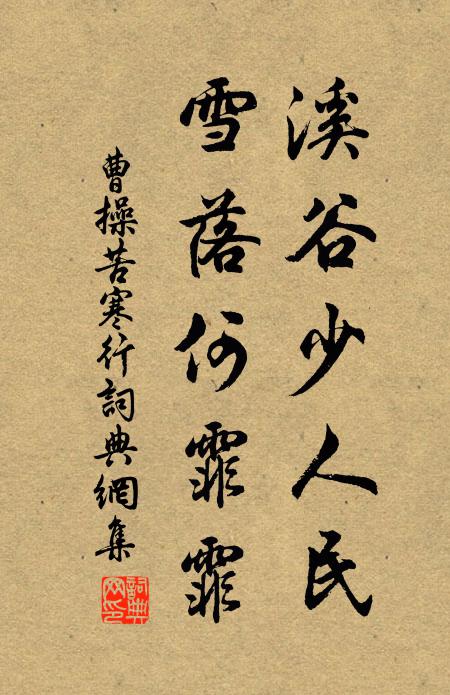 溪谷少人民
雪落何霏霏
曹操苦寒行詞典網集
詞典網印